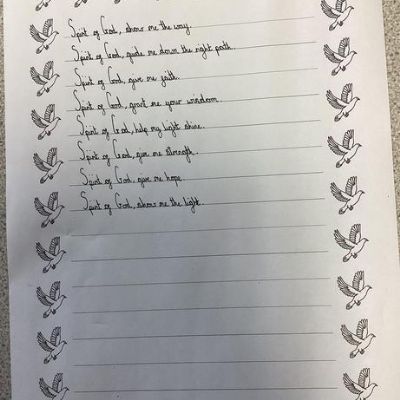 Spirit of God, show me the way.
Spirit of God, guide me down the right path.
Spirit of God, give me faith.
Spirit of God, grant me your wisdom.
Spirit of God, help my light shine.
Spirit of God, give me strength.
Spirit of God, give me hope.
Spirit of God, show me the light.